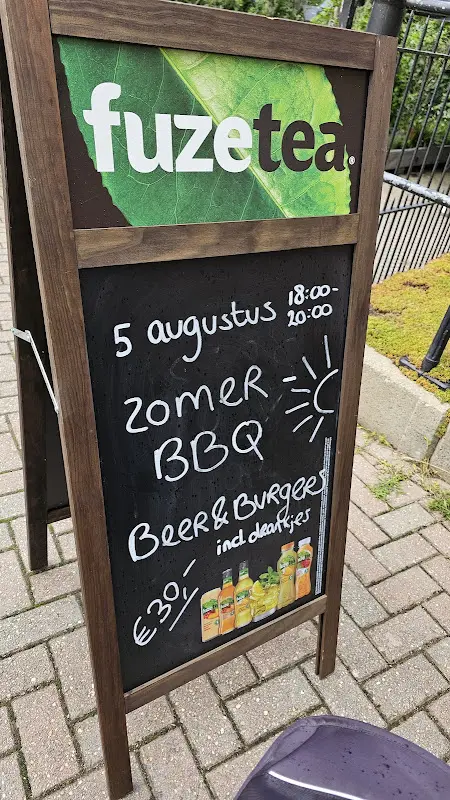 fuzetea
5 augustus 18:00-
20:00
ZOMER
BBQ
BEER & BURGERS
incl drankjes
€30,-